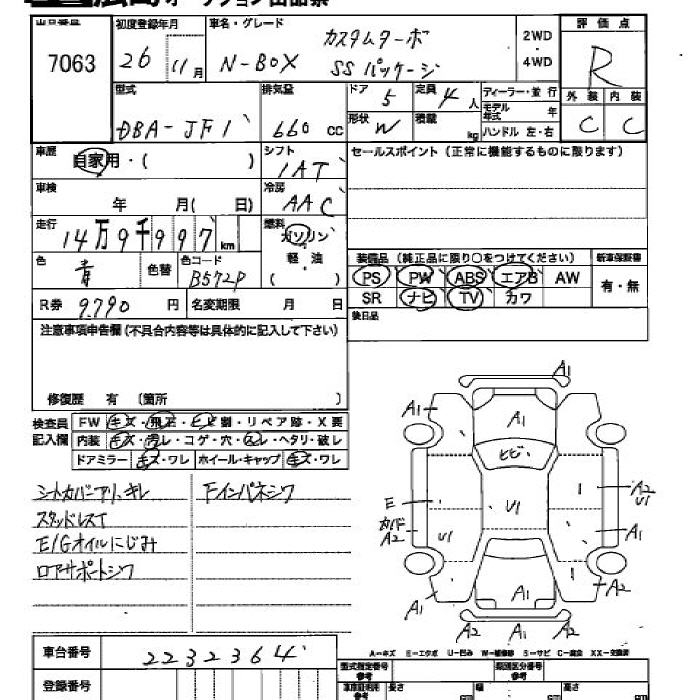 オークション出品票
出品番号 初度登録年月 車名・グレード 評価点
7063 26 11月 N-BOX カスタムターボ SSパッケージ 2WD・4WD R
型式 排気量 ドア 定員 ディーラー・並行 外装 内装
DBA-JF1 660 CC 5 4人 モデル年式 年 C C
形状 W 積載 kg ハンドル 左・右
車歴 自家用・( ) シフト IAT セールスポイント(正常に機能するものに限ります)
車検 年 月( 日) 冷房 AAC
走行 14万9千997km 燃料 ガソリン・軽油 ( )
色 青 色替 色コード B572P 装備品(純正品に限り○をつけてください) 新車保証書
PS PW ABS エアB AW 有・無
R券 9,790円 名変期限 月 日 SR ナビ TV カワ
注意事項申告欄(不具合内容等は具体的に記入して下さい) 後日品
修復歴 有 〔箇所 〕
検査員記入欄 FW キズ・飛石・ヒビ割・リペア跡・X要
内装 キズ・汚レ・コゲ・穴・スレ・ヘタリ・破レ
ドアミラー キズ・ワレ ホイール・キャップ キズ・ワレ
シートカバー アリ、キレ Fインパネシワ
スタッドレスT
E/Gオイルにじみ
ロアサポートシワ
A1
A1 A1 A1
ヒビ
E U1 A2 U1
カド A2 U1 A1
A1 A1 A2
A2 A1 A2
A-キズ E-エクボ U-凹み W-補修跡 S-サビ C-腐食 XX-交換済
車台番号 2232364 型式指定番号 参考 類別区分番号 参考
登録番号 車庫証明用 参考 長さ cm 幅 cm 高さ cm